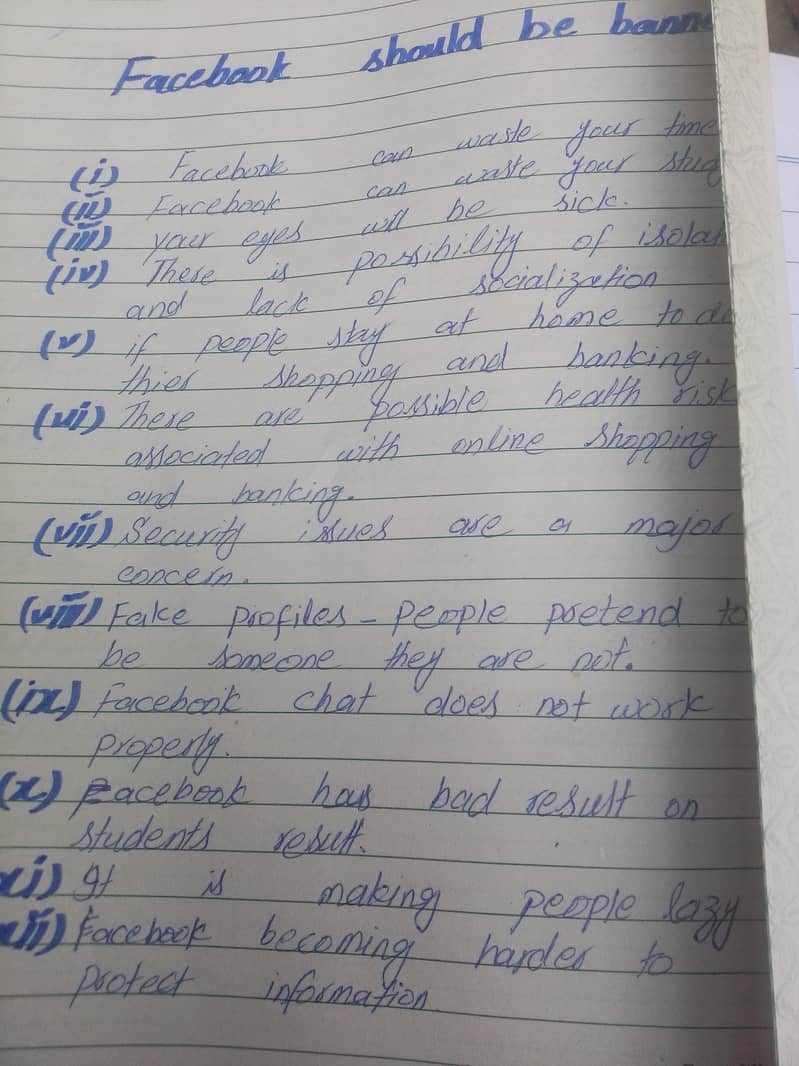 Facebook should be banne
(i) Facebook can waste your time
(ii) Facebook can waste your stud
(iii) your eyes will be sick.
(iv) There is possibility of isolat
and lack of socialization
(v) if people stay at home to do
thier shopping and banking.
(vi) There are possible health risk
associated with online shopping
and banking.
(vii) Security issues are a major
concern.
(viii) Fake profiles - people pretend to
be someone they are not.
(ix) Facebook chat does not work
properly.
(x) Facebook has bad result on
students result.
xi) It is making people lazy
xii) Facebook becoming harder to
protect information.